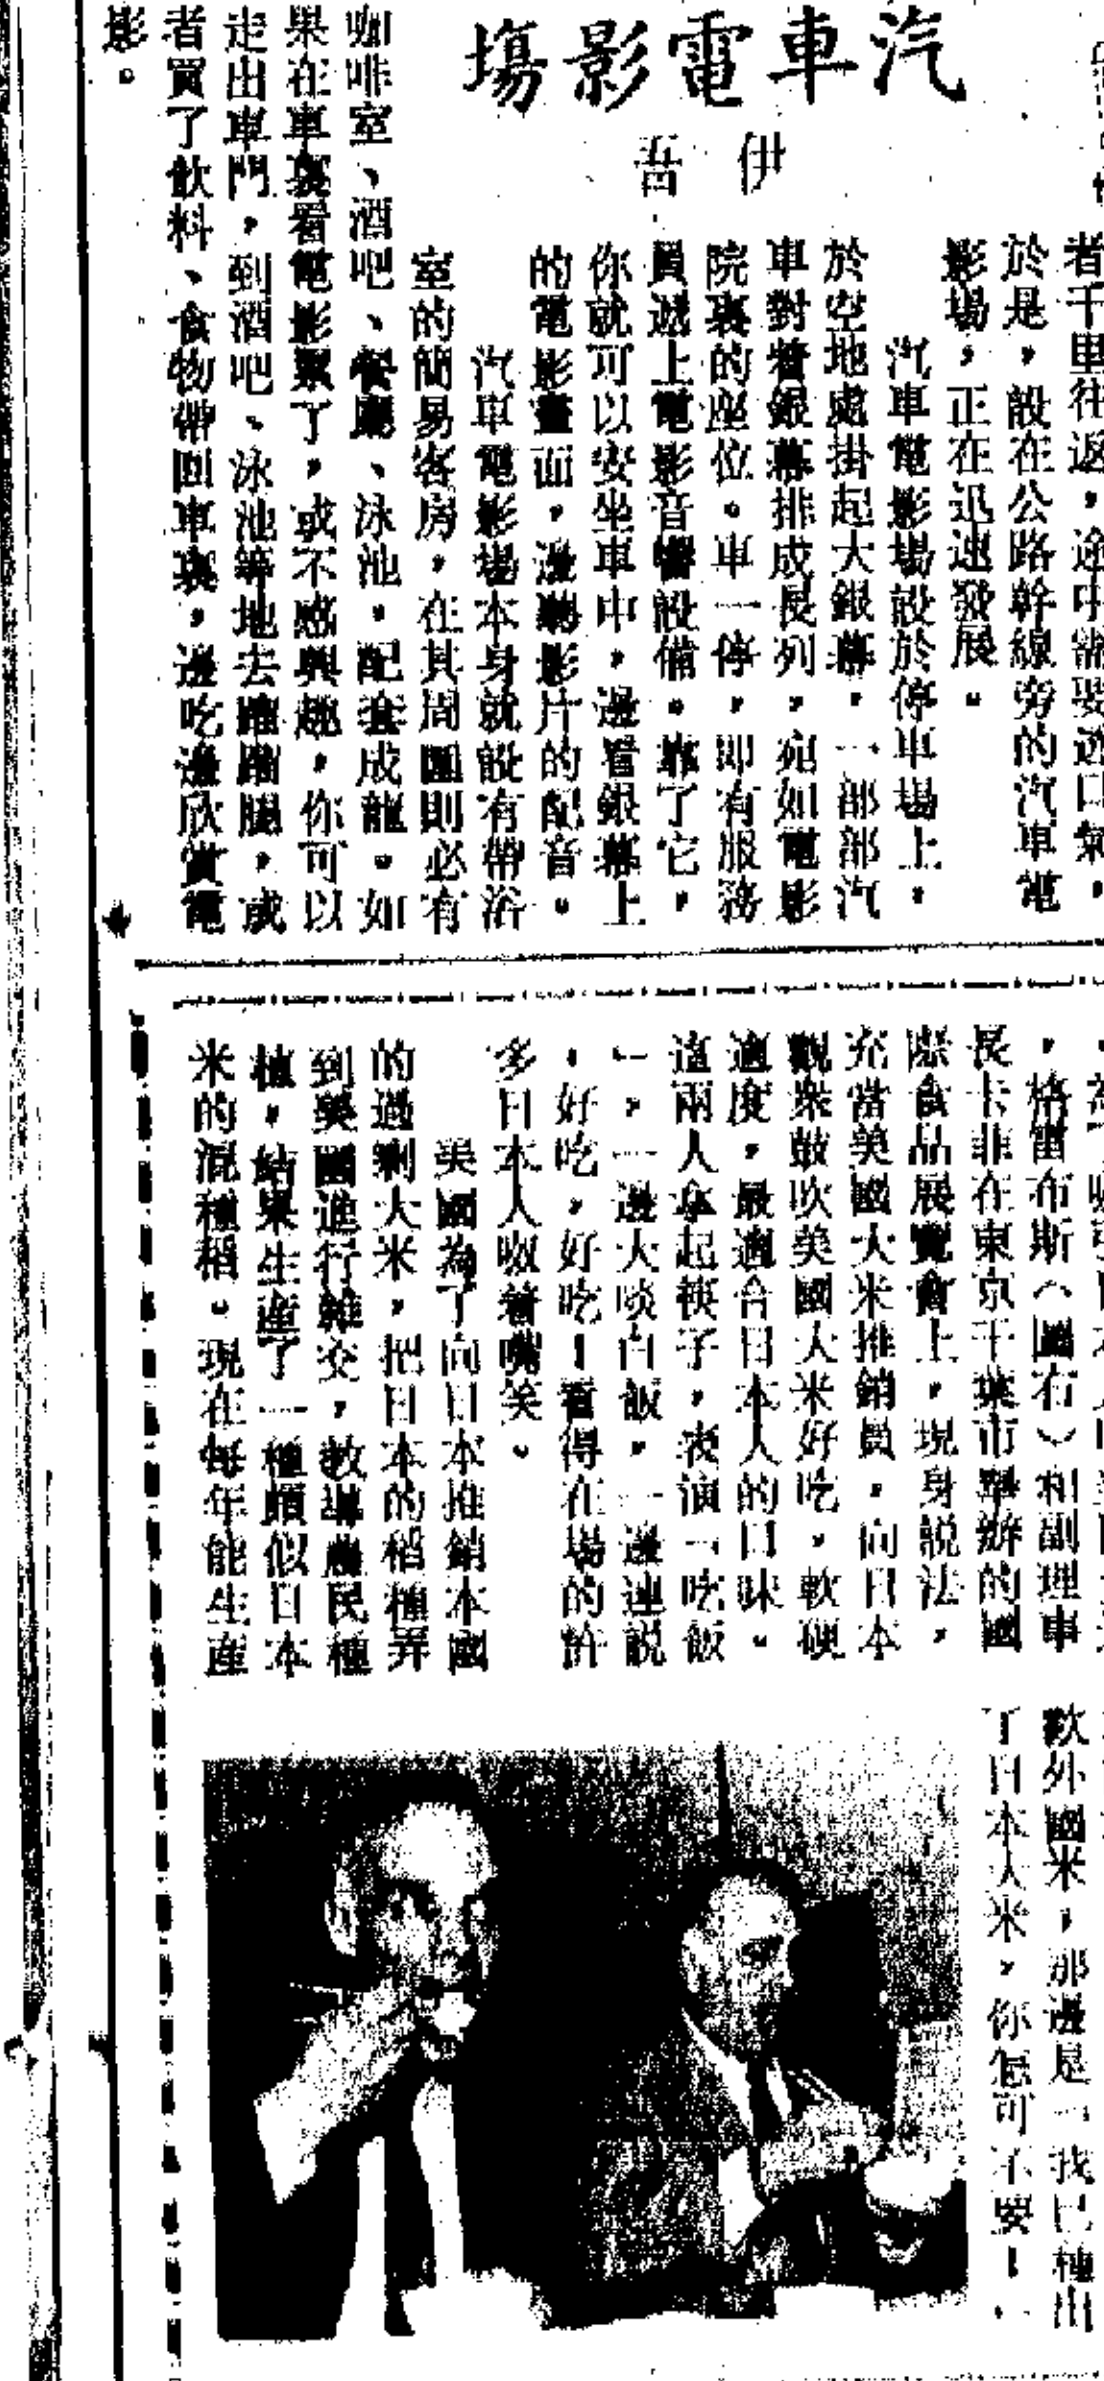 汽車電影場
伊吾
者千里往返，途中需要透口氣，
於是，設在公路幹線旁的汽車電
影場，正在迅速發展。
汽車電影場設於停車場上，
於空地處掛起大銀幕，一部部汽
車對着銀幕排成長列，宛如電影
院裏的座位。車一停，即有服務
員遞上電影音響設備。靠了它，
你就可以安坐車中，邊看銀幕上
的電影畫面，邊聽影片的配音。
汽車電影場本身就設有帶浴
室的簡易客房，在其周圍則必有
咖啡室、酒吧、餐廳、泳池，配套成龍。如
果在車裏看電影累了，或不感興趣，你可以
走出車門，到酒吧、泳池等地去蹓蹓腿，或
者買了飲料、食物帶回車裏，邊吃邊欣賞電
影。
，格雷布斯（圖右）和副理事
長卡非在東京千葉市舉辦的國
際食品展覽會上，現身説法，
充當美國大米推銷員，向日本
觀衆鼓吹美國大米好吃，軟硬
適度，最適合日本人的口味。
這兩人拿起筷子，表演「吃飯
」，一邊大啖白飯，一邊連説
，好吃，好吃！看得在場的許
多日本人咧着嘴笑。
美國為了向日本推銷本國
的過剩大米，把日本的稻種弄
到美國進行雜交，教導農民種
植，結果生産了一種頗似日本
米的混種稻。現在每年能生産
歡外國米，那邊是「我已種出
了日本大米，你怎可不要！」